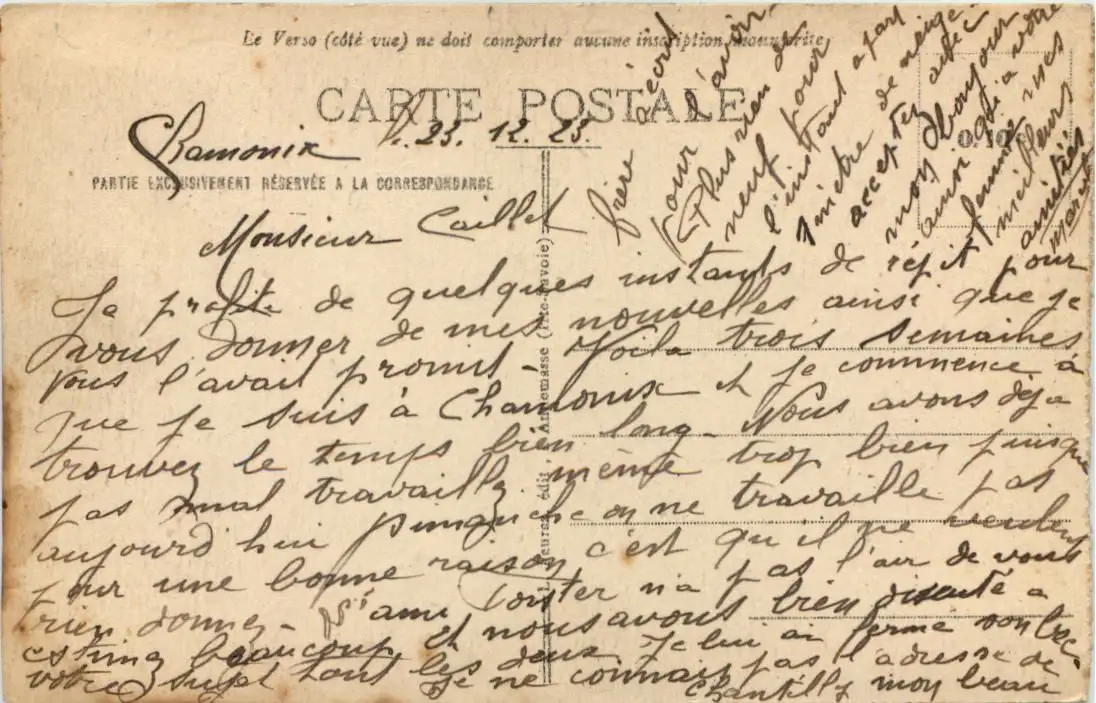 Le Verso (côté vue) ne doit comporter aucune inscription manuscrite
CARTE POSTALE
Chamonix l. 23. 12. 23.
PARTIE EXCLUSIVEMENT RÉSERVÉE A LA CORRESPONDANCE
Monsieur Caillet
Je profite de quelques instants de répit pour
vous donner de mes nouvelles ainsi que je
vous l'avait promit - Voila trois semaines
que je suis à Chamonix et je commence à
trouvez le temps bien long - Nous avons déja
pas mal travaillez même trop bien puisque
aujourd hui on ne travaille pas
pour une bonne raison c'est qu'il ne veulent
rien donnez - L'ami n'a pas l'air de vous
estimez beaucoup, et nous avons bien disputé a
votre sujet tout les deux Je lui ai ferme
Je ne connais pas l'adresse de
Chantilly mon beau
frère
pour l'avoir -
Plus rien de
neuf pour
l'instant a part
1 mètre de neige -
acceptez avec
mon bonjour
ainsi qui a votre
femme mes
meilleurs
amitiés
Marcel
édit., Annemasse (Hte-Savoie)